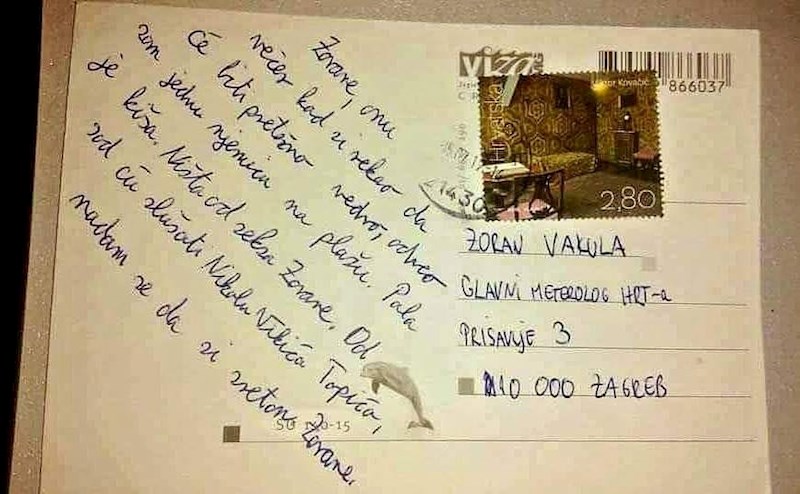 Zorane, onu
večer kad si rekao da
će biti pretežno vedro, odveo
sam jednu njemicu na plažu. Pala
je kiša. Ništa od seksa Zorane. Od
sad ću slušati Nikolu Vikića Topića,
nadam se da si sretan, Zorane.
viza
866037
Kovačić
Hrvatska
2,80
ZORAN VAKULA
GLAVNI METEROLOG HRT-a
PRISAVJE 3
10 000 ZAGREB